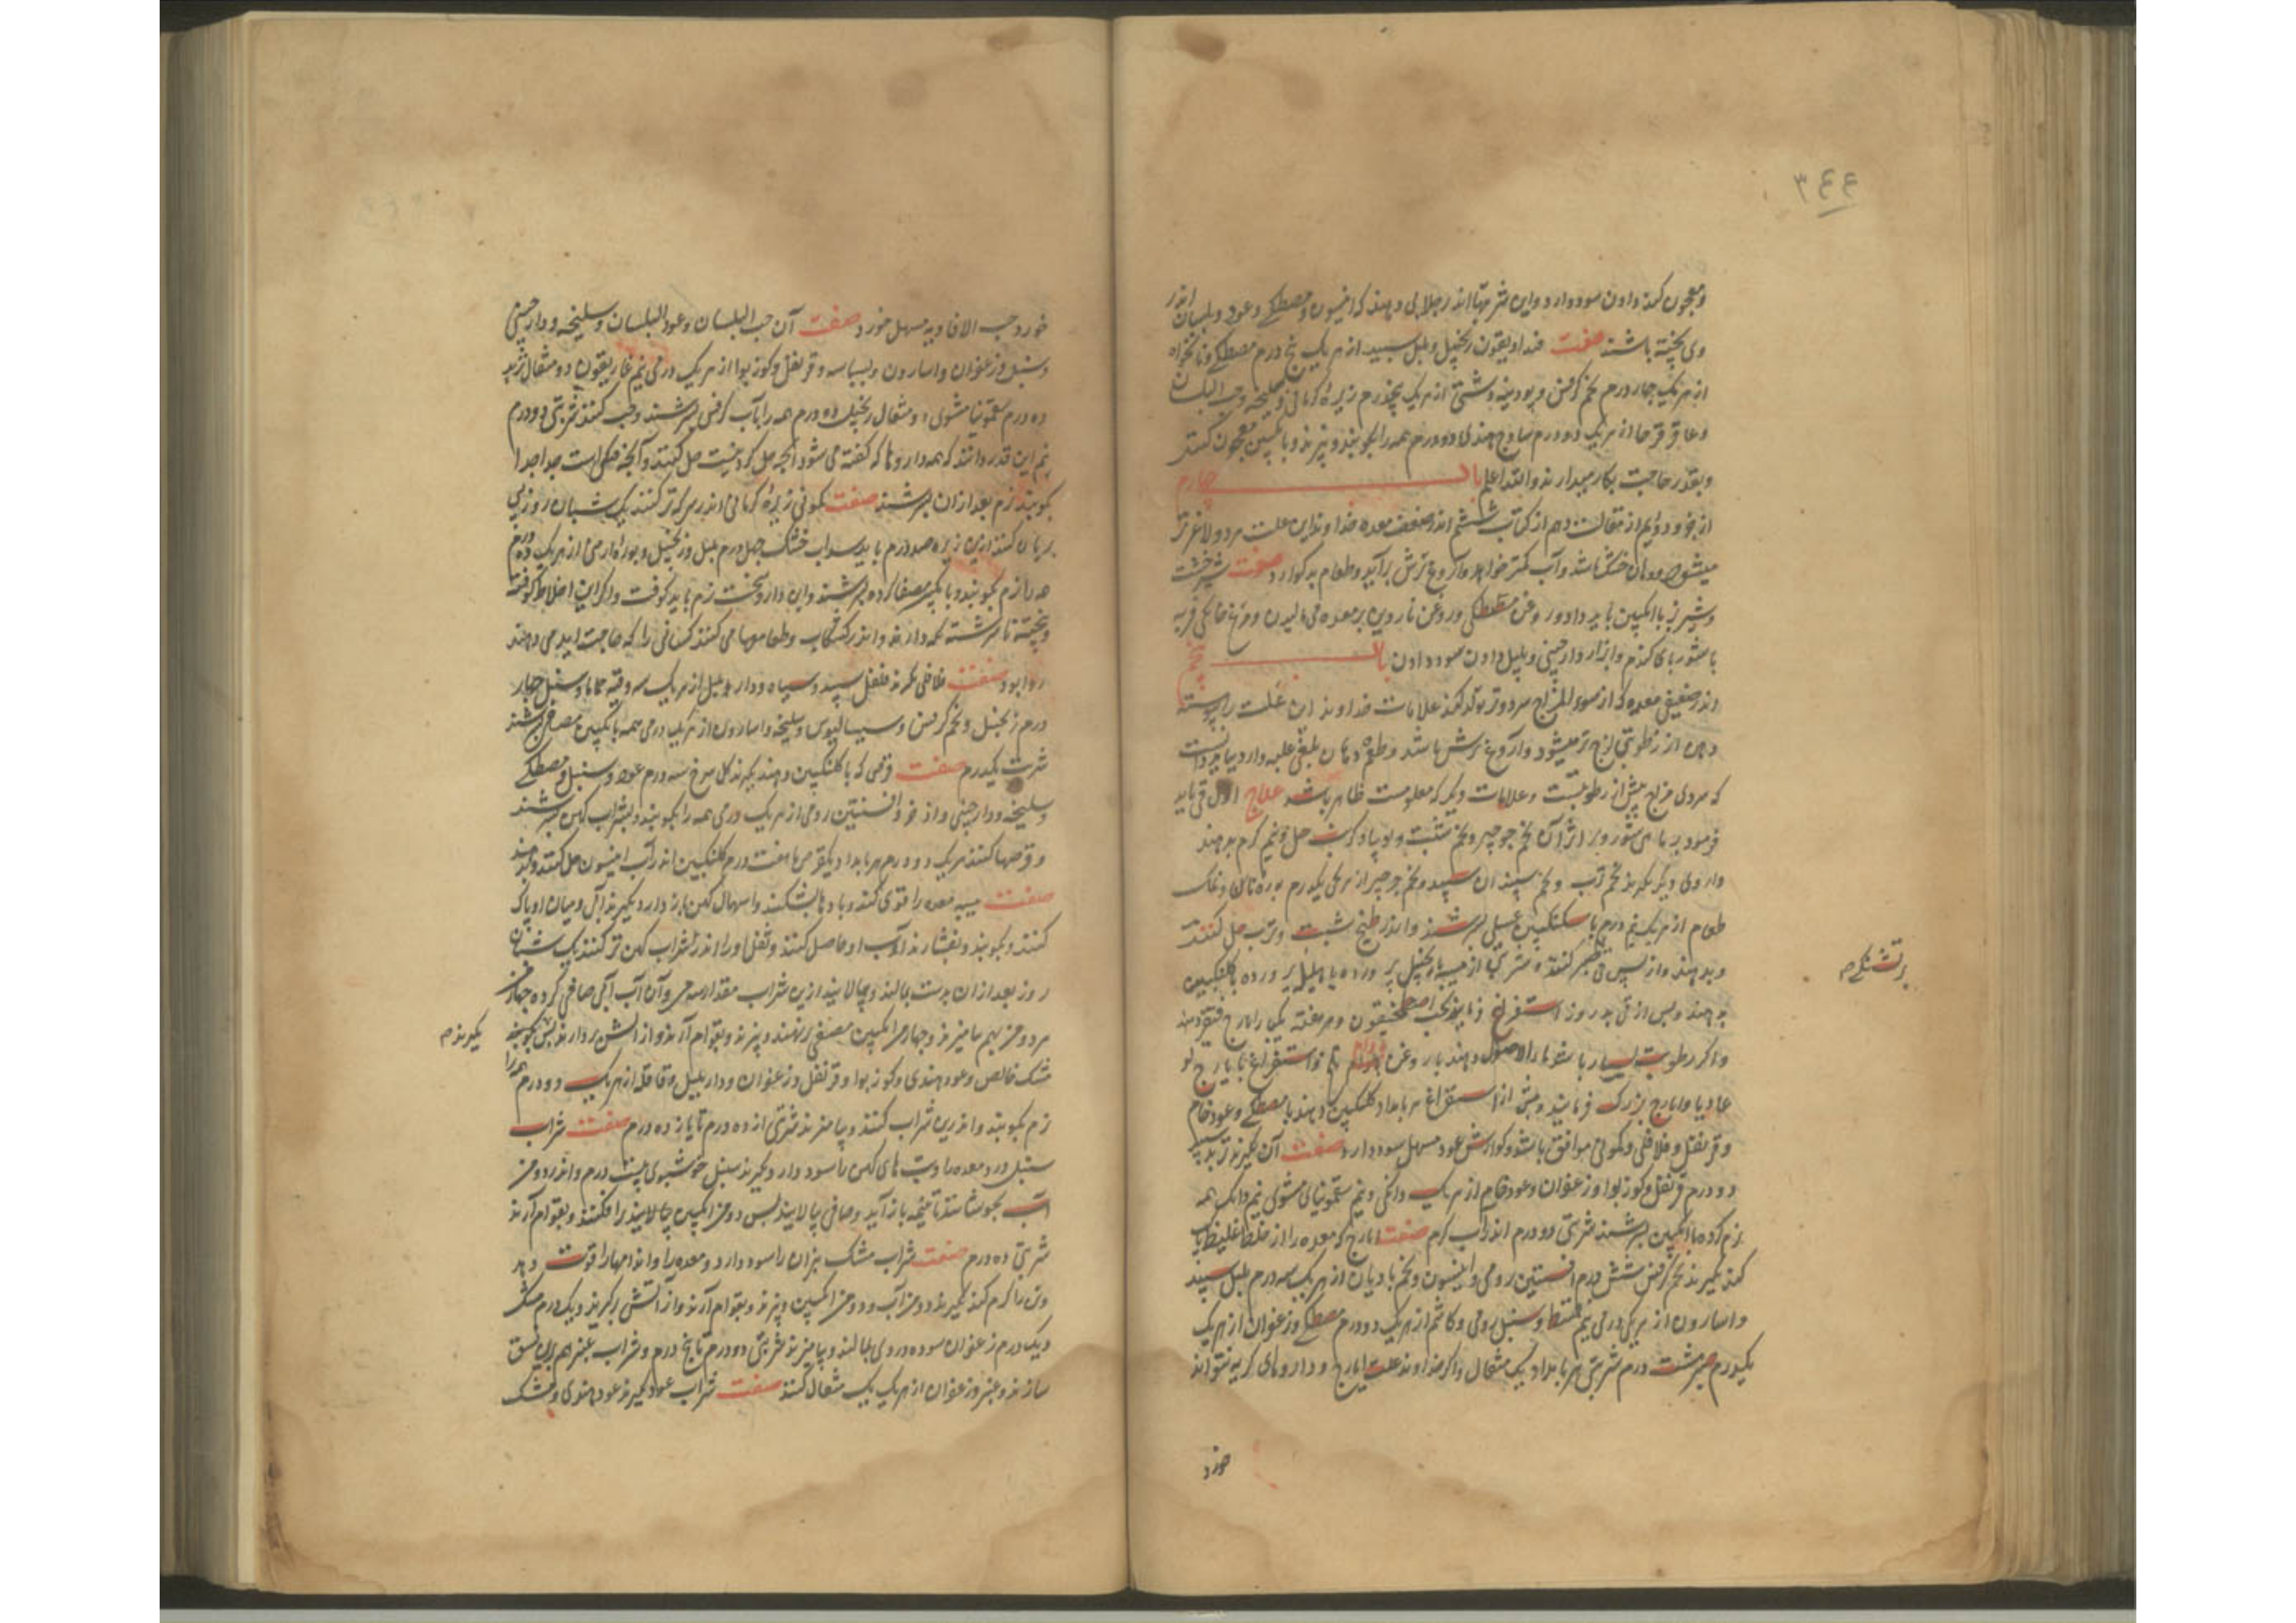 ۳۴۴
و معجون کمونی دادن سود دارد و این شربتها اندر جلابی دهند که انیسون و مصطکی و عود و بلسان اندر
وی پخته باشند صفت فنداویقون زنجبیل و پلپل سپید از هر یک پنج درم مصطکی و نانخواه
از هر یک چهار درم تخم کرفس و پودینه دشتی از هر یک پنجدرم زیره کرمانی و سلیخه و حب البلسان
و عاقرقرحا از هر یک دو درم ساذج هندی دو درم همه را بکوبند و بپزند و بانگبین معجون کنند
و بقدر حاجت بکار میدارند والله اعلم باب چهارم
از جزو دوم از مقالت دهم از کتاب ششم اندر ضعف معده خداوند این علت مرد و لاغر تر
میشود و دهان خشک باشد و آب کمتر خواهد و آروغ ترش برآید و طعام بد گوارد صفت شیر خشت
و شیر بز با انگبین باید داد و روغن مصطکی و روغن ناردین بر معده می مالیدن و مرغ خانگی فربه
با شوربا گندم و ابزار دارچینی و پلپل دادن سود دادن باب پنجم
اندر ضعیفی معده که از سوء المزاج سرد و تر تولد کند علامات خداوند این علت را پیوسته
دهن از رطوبتی لزج تر میشود و آروغ ترش باشد و طعم دهان بلغمی غلبه دارد بباید دانست
که سردی مزاج بیش از رطوبتست و علامات دیگر که معلومست ظاهر باشد علاج اول قی باید
فرمود بر ماهی شور و بر اثر آن تخم جرجیر و تخم شبت و لوبیا و کرنب حل و نیم گرم بدهند
داروی دیگر بگیرند تخم ترب و تخم سپندان سپید و تخم جرجیر از هر یکی یکدرم بوره نانی و نمک
طعام از هر یک نیم درم با سکنگبین عسلی بسرشند و اندر طبیخ شبت و ترب حل کنند
و بدهند و از پس قی صبر کنند و شربتی از میبه با زنجبیل پرورده یا هلیله پرورده با گلنگبین
بدهند و پس از قی بدو روز استفراغ فرمایند بحب اصطمخیقون و هر هفته یکبار ایارج فیقرا دهند
و اگر رطوبت بسیار باشد ماء الاصول دهند با روغن بادام تلخ و استفراغ بایارج لو
عادیا و ایارج بزرگ فرمایند و پیش از استفراغ هر بامداد گلنگبین دهند با مصطکی و عود خام
و قرنفل و فلافلی و کمونی موافق باشد و گوارش عود مسهل سود دارد صفت آن بگیرند تربد سپید
دو درم قرنفل و کوزبوا و زعفران و عود خام از هر یک دانگی و نیم سقمونیای مشوی نیم دانگ همه
نرم کرده با انگبین بسرشند شربتی دو درم اندر آب گرم صفت ایارج که معده را از خلط غلیظ پاک
کند بگیرند تخم کرفس شش درم افسنتین رومی و انیسون و تخم بادیان از هر یک سه درم پلپل سپید
و اسارون از هر یکی درمی نیم قسط و سنبل رومی و کاشم از هر یک دو درم مصطکی و زعفران از هر یک
یکدرم صبر هشت درم شربتی هر بامداد یک مثقال و اگر خداوند علت ایارج و داروهای کریه نتواند
خورد
خورد حب الافاویه مسهل خورد صفت آن حب البلسان و عود البلسان و سلیخه و دارچینی
و سنبل و زعفران و اسارون و بسباسه و قرنفل و کوزبوا از هر یک درمی نیم غاریقون دو مثقال تربد
ده درم سقمونیا مشوی دو مثقال زنجبیل ده درم همه را بآب کرفس بسرشند و حب کنند شربتی دو درم
نیم این قدر دانند که همه داروها که گفته می شود آنچه حل کردنیست حل کنند و آنچه خشک است جدا جدا
بکوبند نرم بعد از آن بسرشند صفت کمونی زیره کرمانی اندر سرکه تر کنند یک شبان روز پس
بریان کنند از این زیره صد درم باید سداب خشک چهل درم پلپل و زنجبیل و بوره ارمنی از هر یک ده درم
همه را نرم بکوبند و بانگبین مصفا کرده بسرشند و این دارو سخت نرم باید کوفت و اگر این اخلاط کوفته
و بیخته نا سرشته نگه دارند و اندر کشکاب و طعامها می کنند کسانی را که حاجت آید می دهند
روا بود صفت فلافلی بگیرند فلفل سپید و سیاه و دار پلپل از هر یک سه وقیه حماما و سنبل چهار
درم زنجبیل و تخم کرفس و سیسالیوس و سلیخه و اسارون از هر یک درمی همه بانگبین مصفی بسرشند
شربت یکدرم صفت قرصی که با گلنگبین دهند بگیرند گل سرخ سه درم عود و سنبل و مصطکی
و سلیخه و دارچینی و اذخر و افسنتین رومی از هر یک درمی همه را بکوبند و بشراب کهن بسرشند
و قرصها کنند هر یک دو درم هر بامداد یکقرص با هفت درم گلنگبین اندر آب انیسون حل کنند و دهند
صفت میبه معده را قوی کند و بادها بشکند و اسهال کهن باز دارد بگیرند آبی و میان او پاک
کنند و بکوبند و بفشارند و آب او حاصل کنند و ثفل او را اندر شراب کهن تر کنند یک شبان
روز بعد از آن بدست بمالند و بپالایند از این شراب مقدار سه جزو و آن آب آبی صافی کرده چهار جزو
هر دو جزو بهم بیامیزند و چهار جزو انگبین مصفی برنهند و بپزند و بقوام آرند و از آتش بردارند پس بکوبند
مشک خالص و عود هندی و کوزبوا و قرنفل و زعفران و دار پلپل و قاقله از هر یک دو درم همه را
نرم بکوبند و اندرین شراب کنند و بیامیزند شربتی از ده درم تا پانزده درم صفت شراب
سنبل درد معده را و تب های کهن را سود دارد بگیرند سنبل خوشبوی بیست درم و اندر دو من
آب بجوشانند تا بنیمه باز آید و صافی بپالایند پس دو من انگبین بپالایند برافکنند و بقوام آرند
شربتی ده درم صفت شراب مشک پیران را سود دارد و معده را و اندامها را قوت دهد
و تن را گرم کند بگیرند دو من آب و دو من انگبین و بپزند و بقوام آرند و از آتش برگیرند و یک درم مشک
و یکدرم زعفران سوده در وی بمالند و بیامیزند شربتی دو درم تا پنج درم و شراب عنبر هم برین نسق
سازند و عنبر و زعفران از هر یک یک مثقال کنند صفت شراب عود بگیرند عود هندی و مشک
بگیرند م